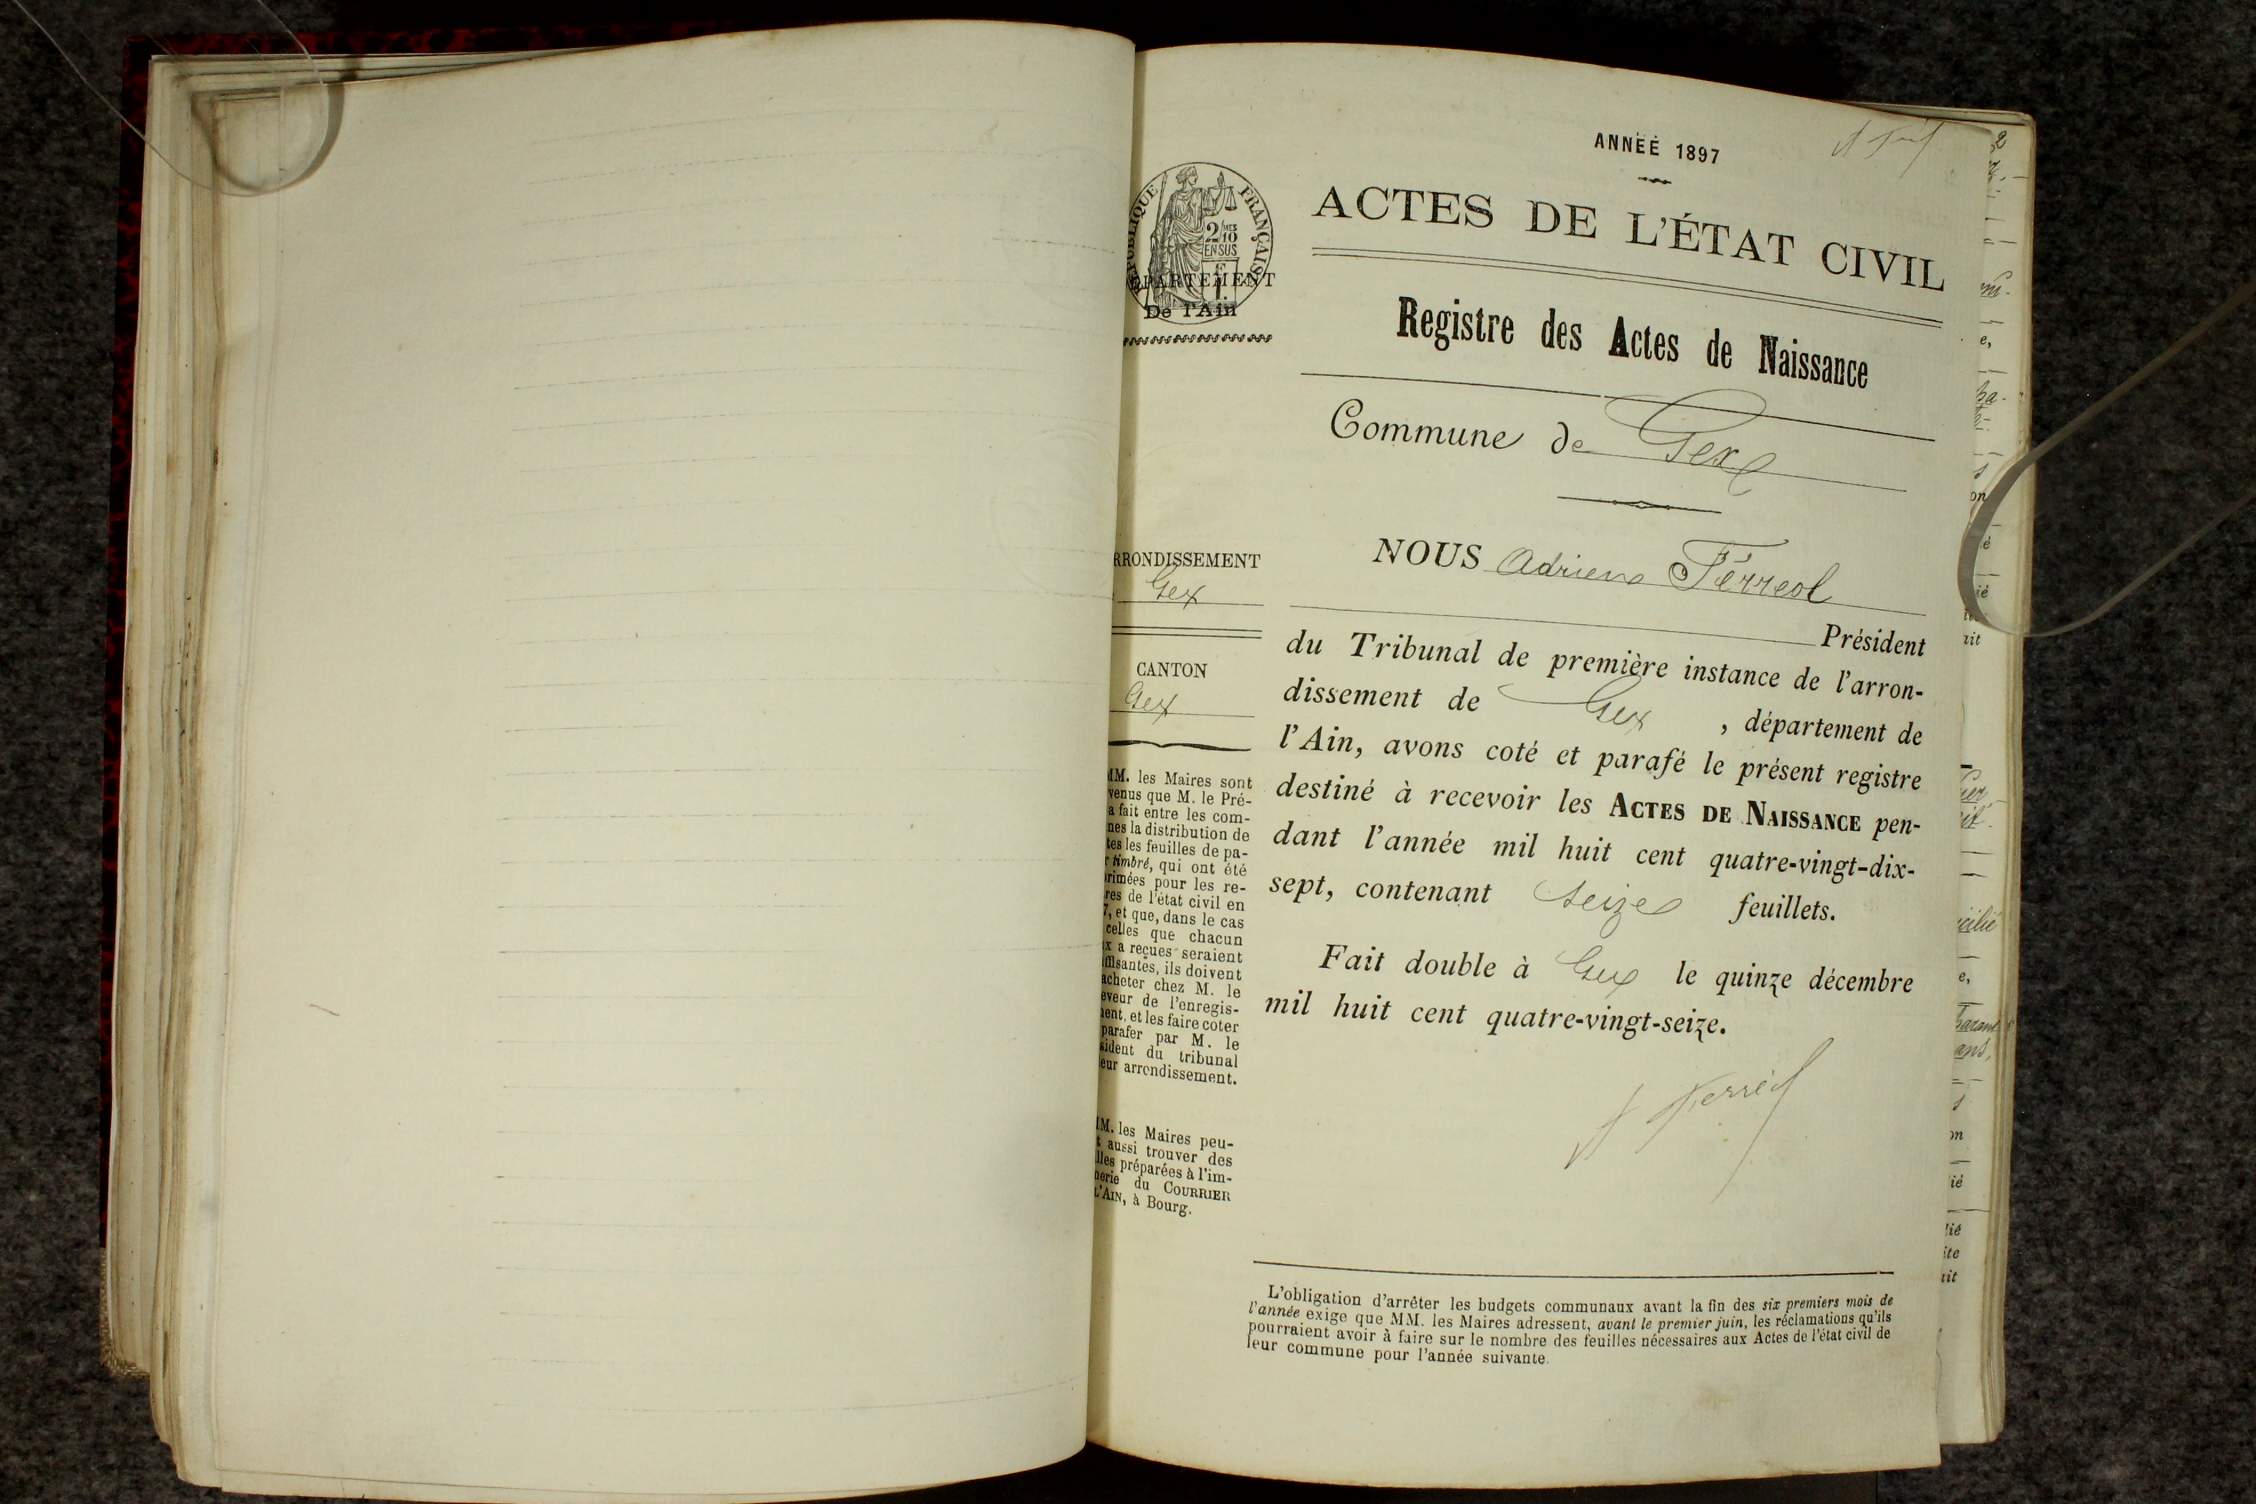 ANNÉE 1897
ACTES DE L'ÉTAT CIVIL
Registre des Actes de Naissance
Commune de Gex
NOUS Adrien Férreol
Président
du Tribunal de première instance de l'arron-
dissement de Gex , département de
l'Ain, avons coté et parafé le présent registre
destiné à recevoir les ACTES DE NAISSANCE pen-
dant l'année mil huit cent quatre-vingt-dix-
sept, contenant seize feuillets.
Fait double à Gex le quinze décembre
mil huit cent quatre-vingt-seize.
L'obligation d'arrêter les budgets communaux avant la fin des six premiers mois de
l'année exige que MM. les Maires adressent, avant le premier juin, les réclamations qu'ils
pourraient avoir à faire sur le nombre des feuilles nécessaires aux Actes de l'état civil de
leur commune pour l'année suivante.
RÉPUBLIQUE FRANÇAISE
2/10 MES
EN SUS
PARTEMENT
De l'Ain
RRONDISSEMENT
Gex
CANTON
Gex
MM. les Maires sont
venus que M. le Pré-
a fait entre les com-
nes la distribution de
tes les feuilles de pa-
r timbré, qui ont été
rimées pour les re-
res de l'état civil en
7, et que, dans le cas
celles que chacun
x a reçues seraient
ffisantes, ils doivent
acheter chez M. le
eveur de l'enregis-
ent, et les faire coter
parafer par M. le
sident du tribunal
eur arrondissement.
MM. les Maires peu-
t aussi trouver des
lles préparées à l'im-
merie du COURRIER
L'AIN, à Bourg.